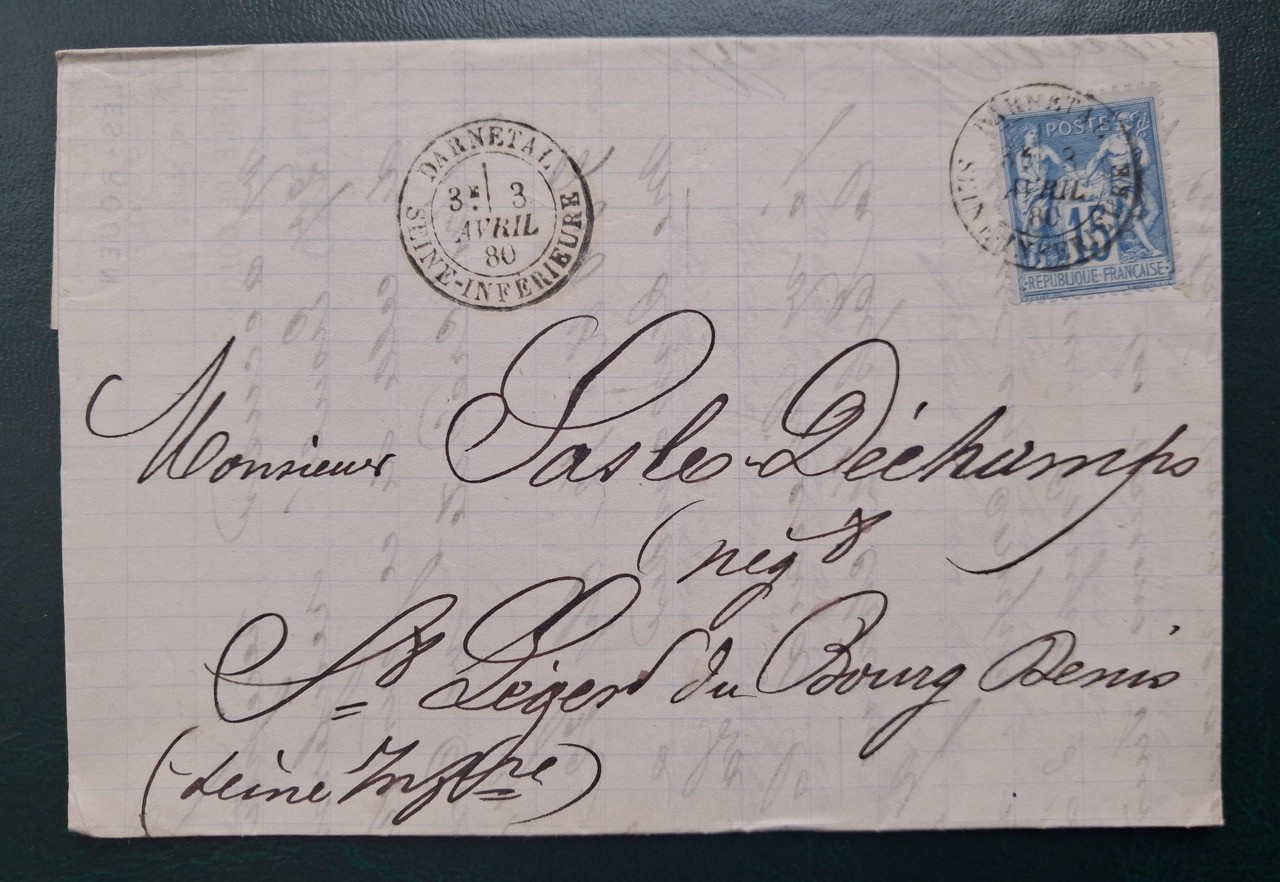 DARNETAL
3E 3
AVRIL
80
SEINE-INFERIEURE
DARNETAL
3
AVRIL
80
SEINE-INFERIEURE
POSTES
15
REPUBLIQUE FRANÇAISE
Monsieur Déchamps
négt
St Léger du Bourg Denis
(Seine Infre)
ROUEN